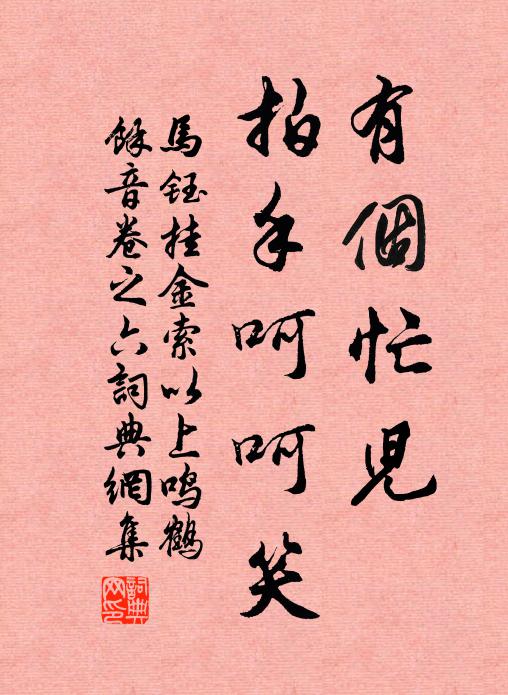 有個忙児
拍手呵呵笑
馬鈺挂金索以上鳴鶴
餘音卷之六詞典網集
詞典
网印